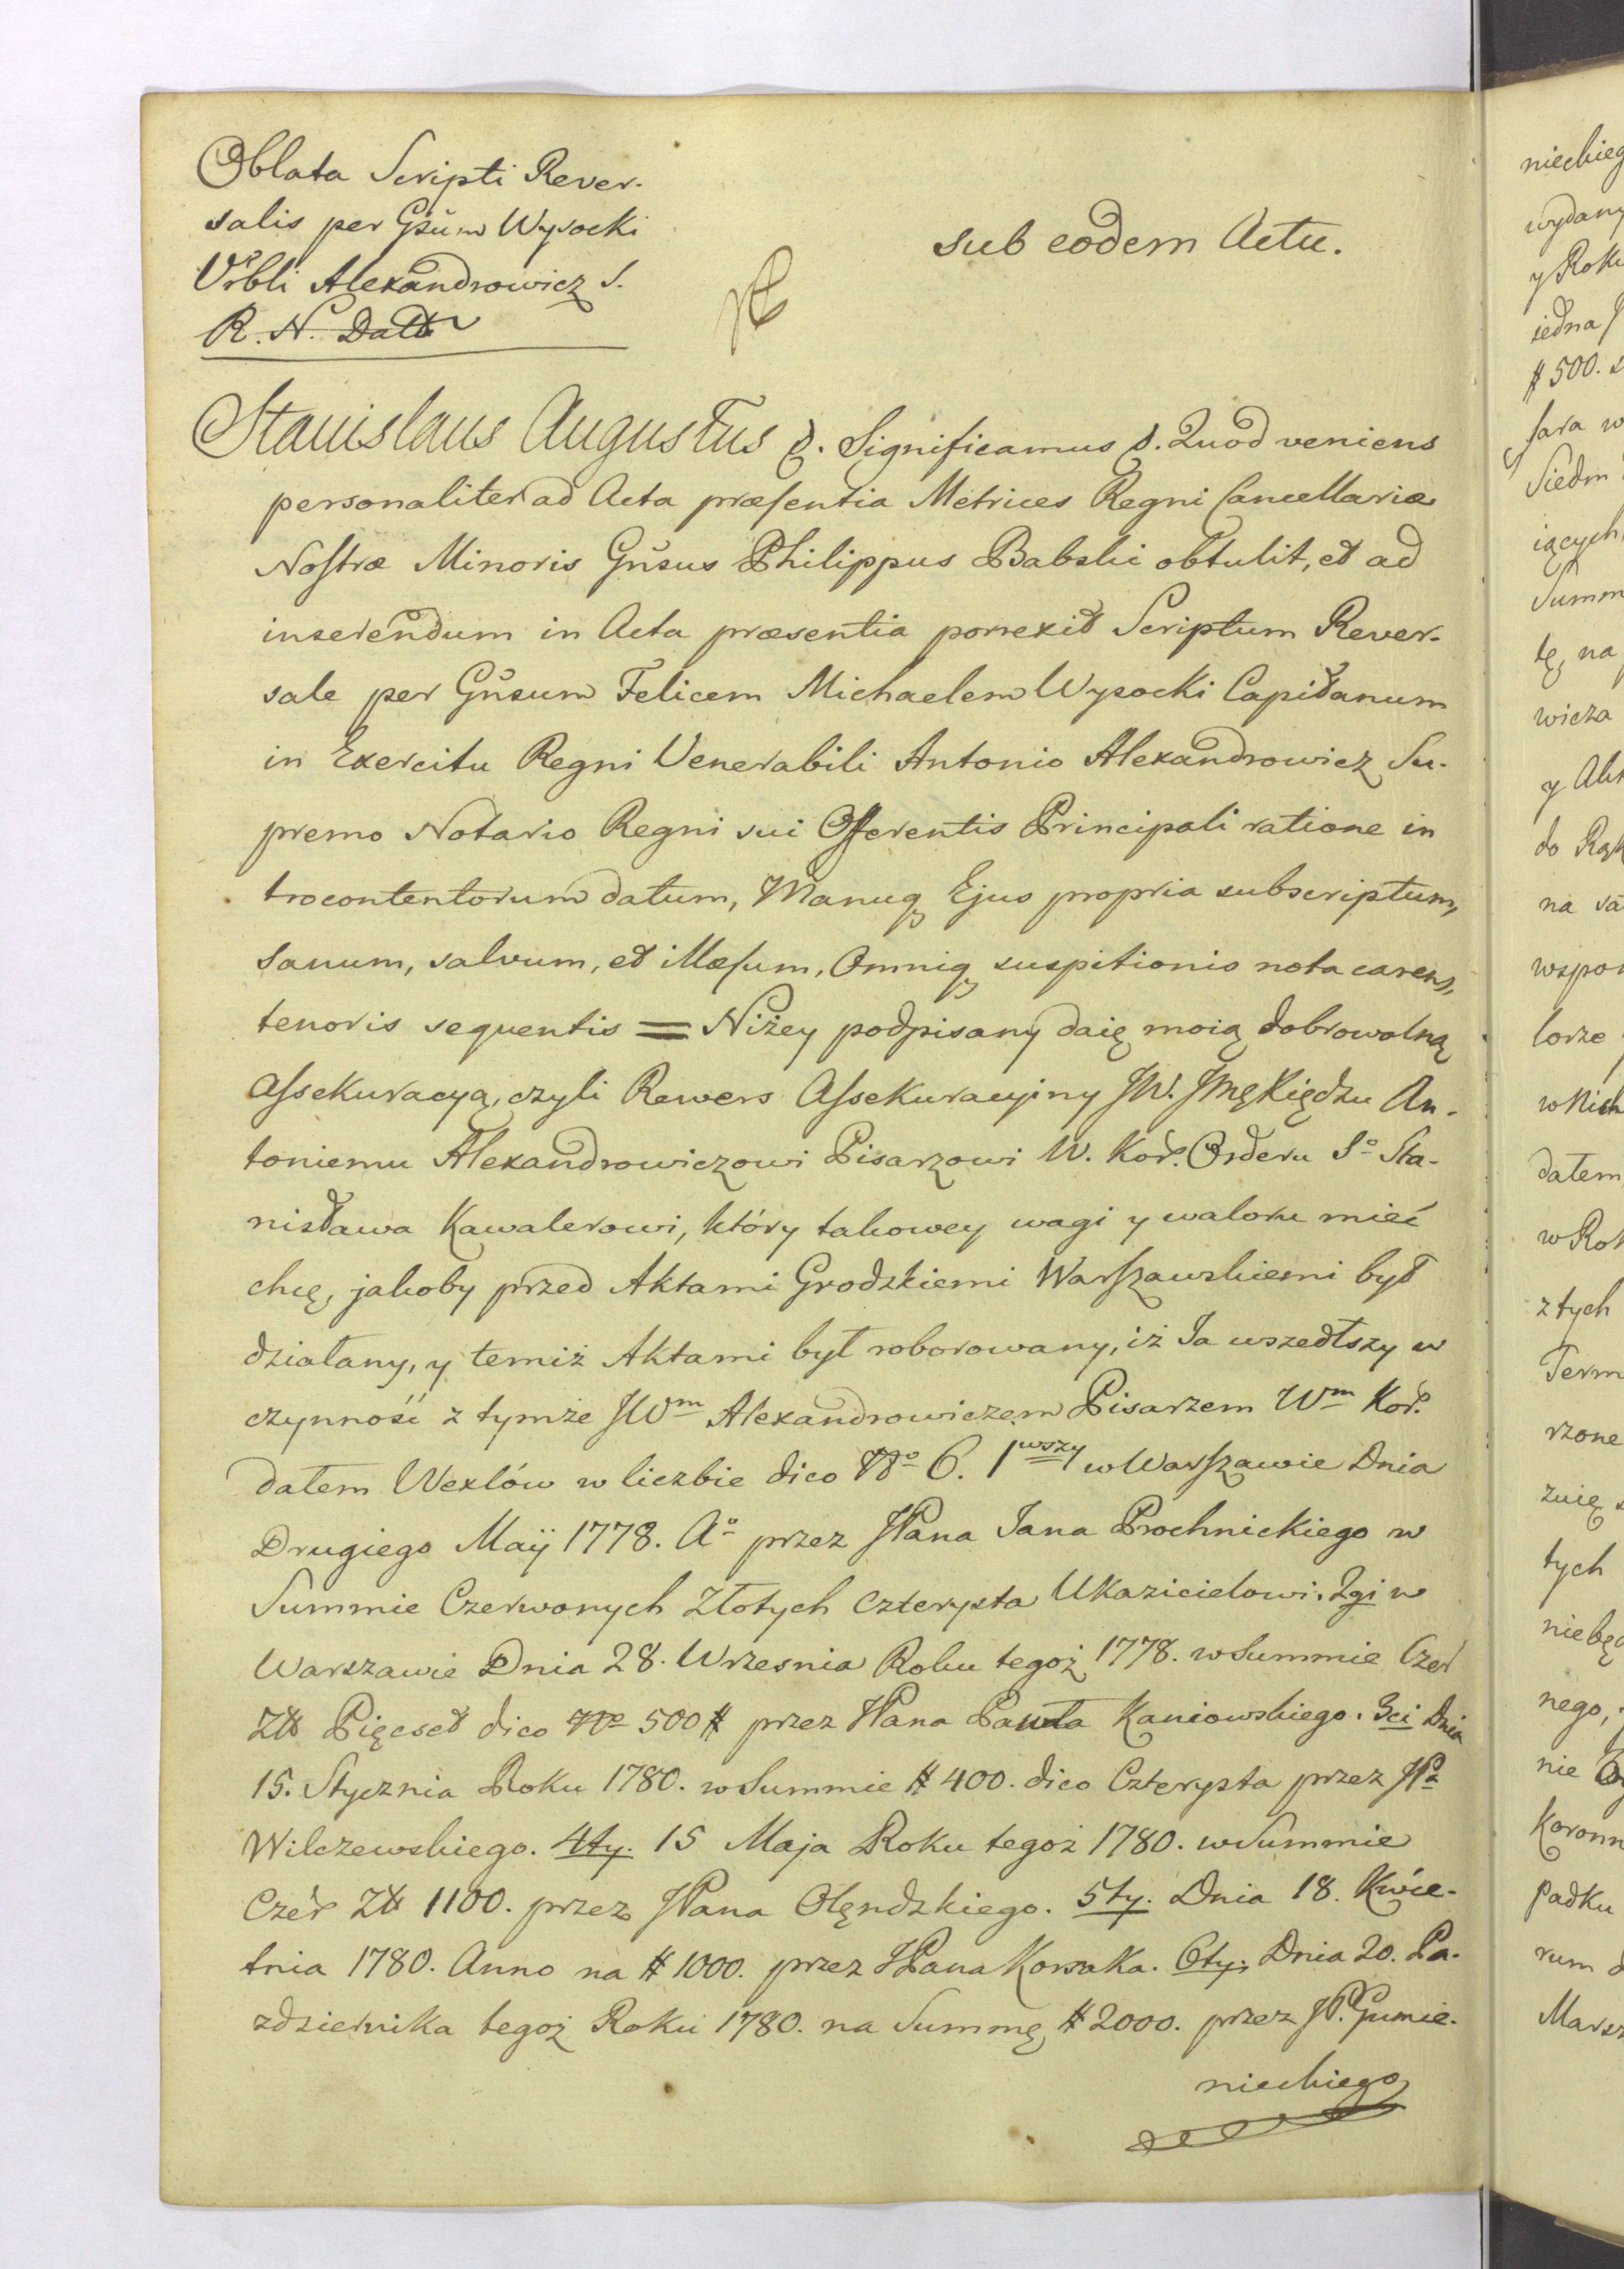 Oblata Scripti Rever-
salis per Gsum Wysocki
Vrbli Alexandrowicz S.
R. N. Dath
sub eodem Actu.
Stanislaus Augustus &. Significamus &. Quod veniens
personaliter ad Acta præsentia Metrices Regni Cancellariæ
Nostræ Minoris Gnsus Philippus Babski obtulit, et ad
inserendum in Acta præsentia porrexit Scriptum Rever-
sale per Gnsum Felicem Michaelem Wysocki Capitanum
in Exercitu Regni Venerabili Antonio Alexandrowicz Su-
premo Notario Regni sui Offerentis Principali ratione in
trocontentorum datum, Manuq Ejus propria subscriptum,
sanum, salvum, et illæsum, Omniq suspitionis nota carens,
tenoris sequentis = Niżey podpisany daię moią dobrowolną
Assekuracyą, czyli Rewers Assekuracyiny JW. Jmę Xiędzu An-
toniemu Alexandrowiczowi Pisarzowi W. Kor. Orderu So Sta-
nisława Kawalerowi, który takowey wagi y waloru mieć
chcę, jakoby przed Aktami Grodzkiemi Warszawskiemi był
działany, y temiż Aktami był roborowany, iż Ja wszedłszy w
czynność z tymże JWm Alexandrowiczem Pisarzem Wm Kor.
dałem Wexlów w liczbie dico No 6. 1wszy w Warszawie Dnia
Drugiego Maÿ 1778. Ao przez JPana Jana Prochnickiego w
Summie Czerwonych Złotych czterysta Ukazicielowi. 2gi w
Warszawie Dnia 28. Wrzesnia Roku tegoż 1778. w Summie Czer
Zł Pięcset dico No 500 # przez JPana Pawła Kaniowskiego. 3ci Dnia
15. Stycznia Roku 1780. w Summie # 400. dico Czterysta przez JPa
Wilczewskiego. 4ty. 15 Maja Roku tegoż 1780. w Summie
Czer Zł 1100. przez JPana Olędzkiego. 5ty. Dnia 18. Kwie-
tnia 1780. Anno na # 1000. przez JPana Korsaka. 6ty. Dnia 20. Pa-
zdziernika tegoż Roku 1780. na Summę # 2000. przez JP. Gumie-
nieckiego